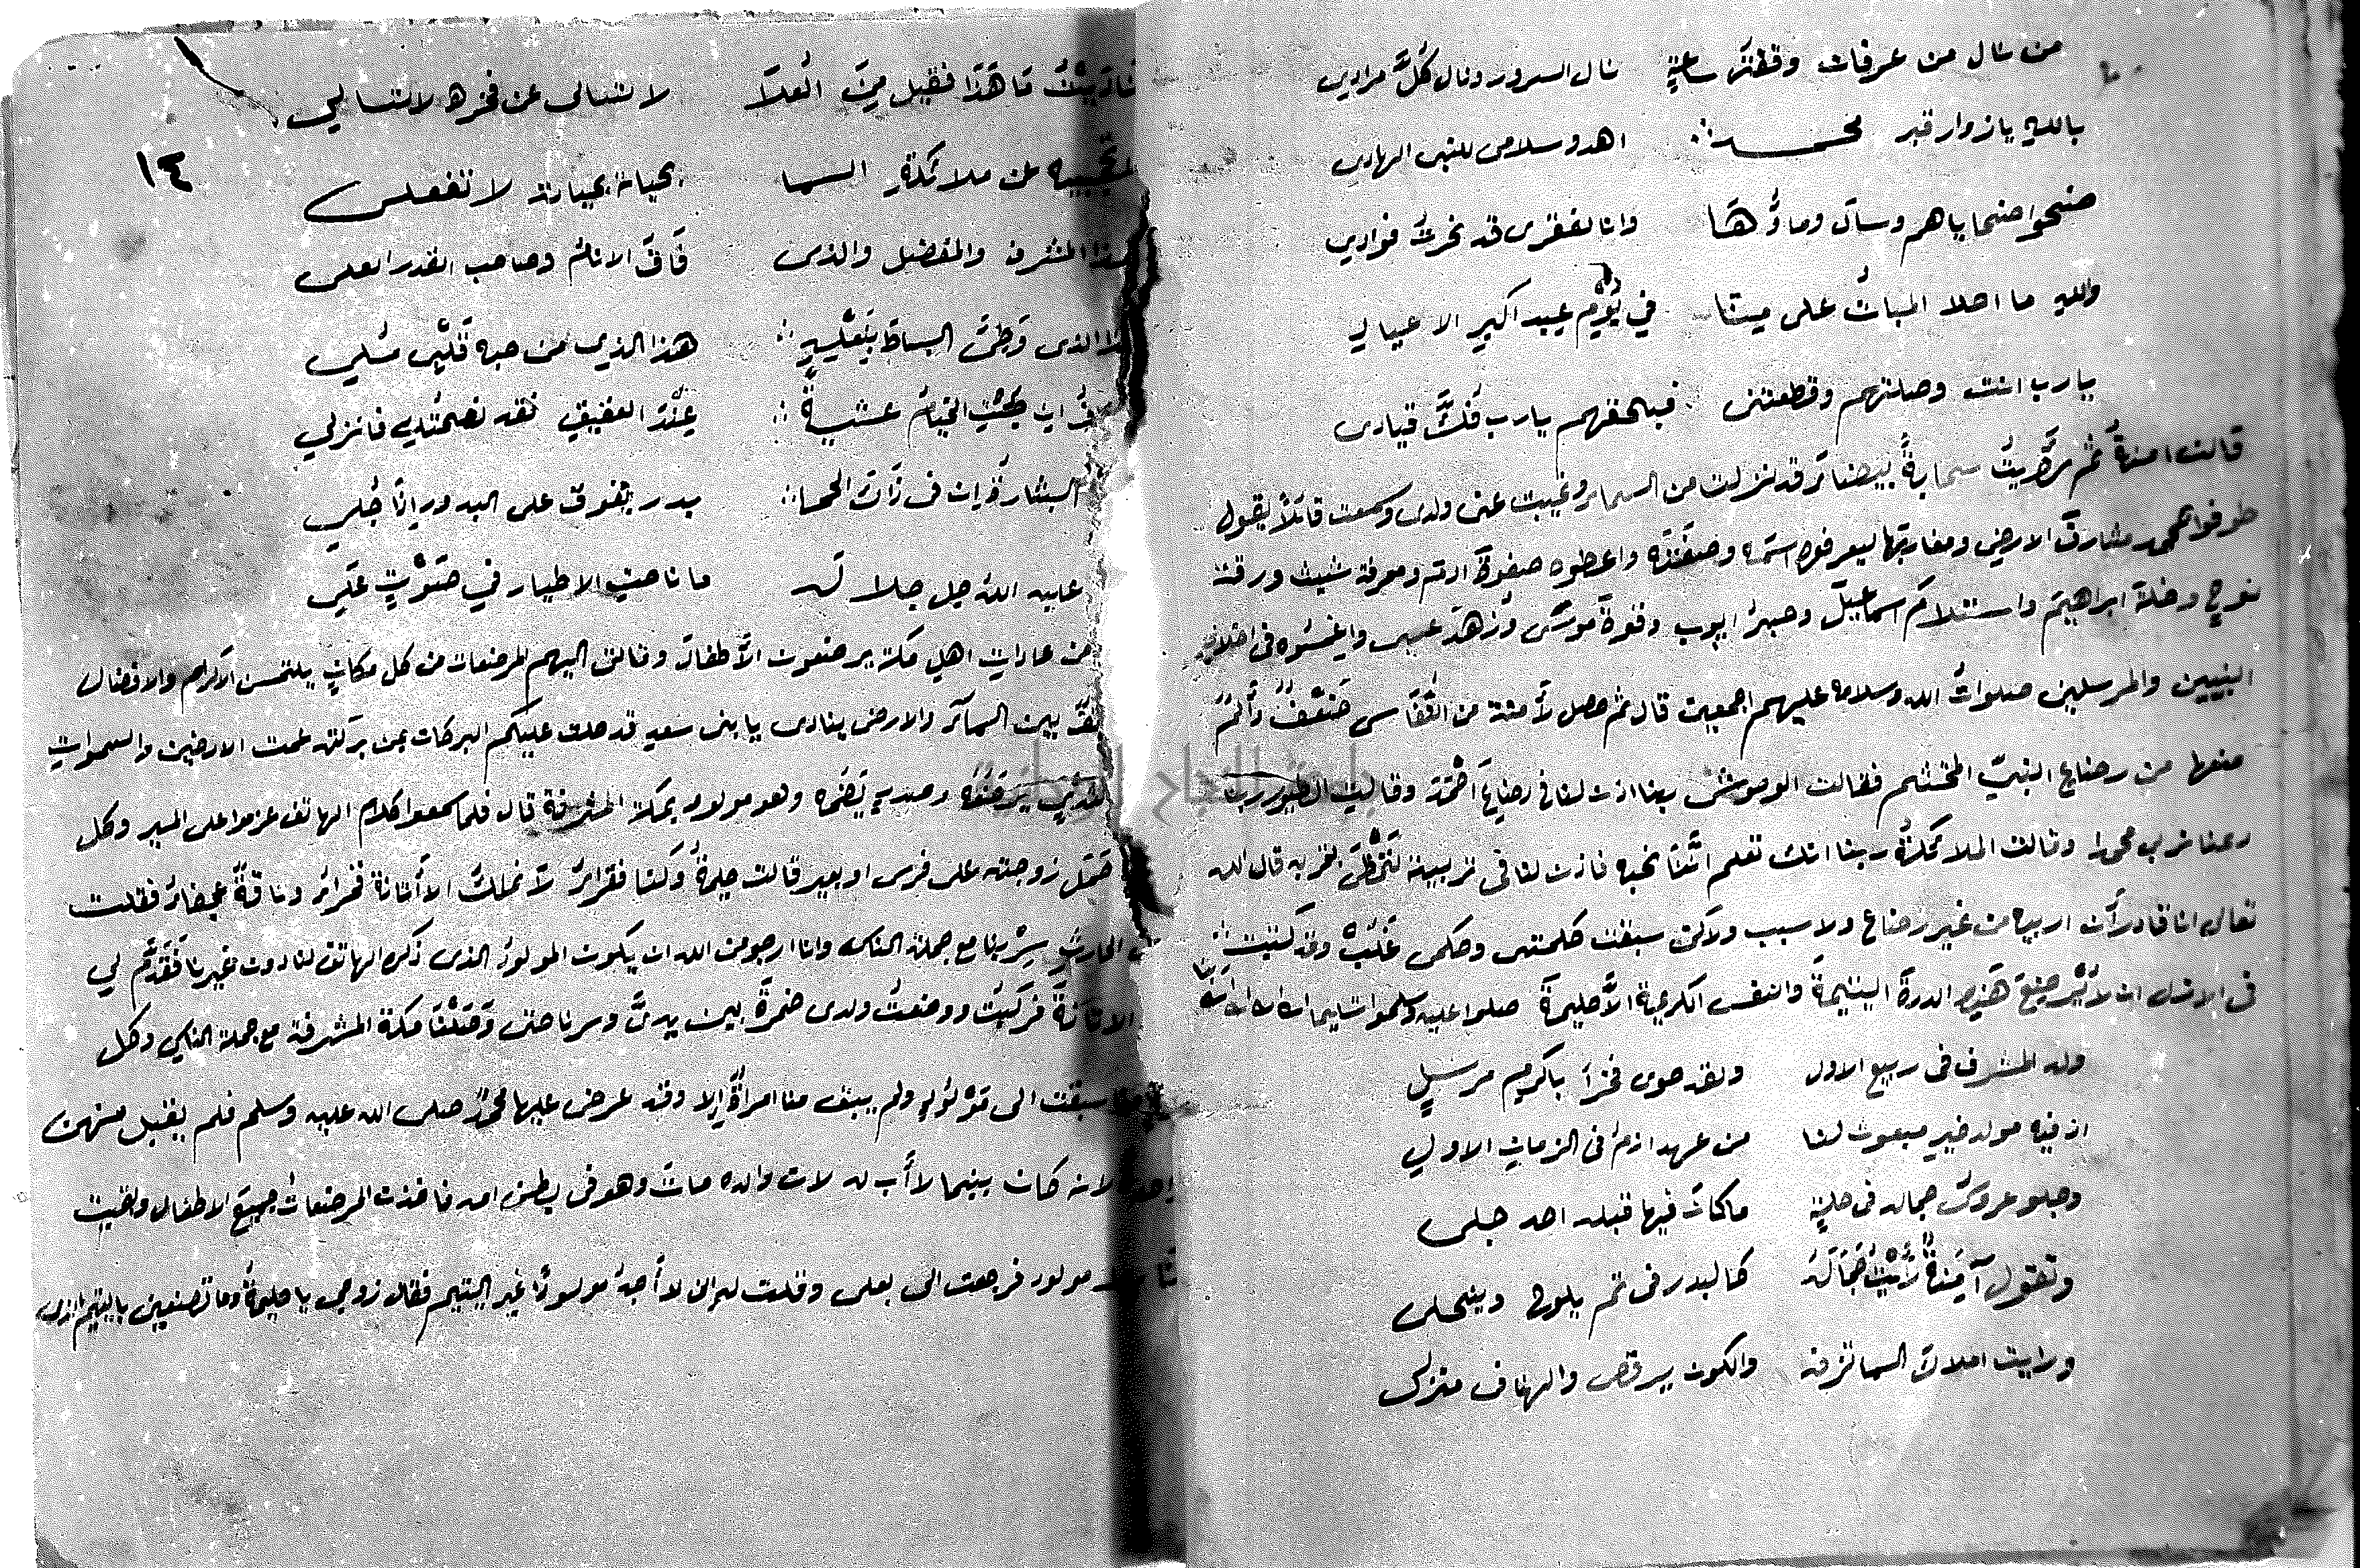 من نال من عرفات وقفة ساعة نال السرور ونال كل مرادي
بالله يا زوار قبر محمد اهدو سلامي للنبي الهادي
ضحوا ضحاياهم وسال وماؤها وانا لفقري قد نحرت فوادي
والله ما احلا المبات على منا في يوم عيد اكبر الاعيالي
يا رب انت وصلتهم وقطعتني فبحقهم يا رب فك قيادي
قالت امنة ثم رئيت سحابة بيضاء قد نزلت من السماء وغيبت عني ولدي وسمعت قائلا يقول
طوفوا بمحمد مشارق الارض ومغاربها ليعرفوه اسمه وصفته واعطوه صفوة ادم ومعرفة شيث ورقة
نوح وخلة ابراهيم واستسلام اسماعيل وصبر ايوب وقوة موسى وزهد عيسى واغمسوه في اخلاق
النبيين والمرسلين صلوات الله وسلامه عليهم اجمعين قال ثم حصل لأمنة من النفاس ضعف وألم
منعها من رضاع النبي المحتشم فقالت الوحوش ربنا اذن لنا في رضاع احمد وقالت الطيور ربنا
دعنا نربي محمدا وقالت الملائكة ربنا انك تعلم اننا نحبه فاذن لنا في تربيته لنحظى بقربه قال الله
تعالى انا قادر أن اربيه من غير رضاع ولا سبب ولاكن سبقت كلمتي وحكمي غلب وقد كتبت
في الازل ان لا يرضع هذه الدرة اليتيمة والنفس الكريمة الا حليمة صلوا عليه وسلموا تسليما
ولد المشرف في ربيع الاول ولقد حوى فخرا باكرم مرسل
اذ فيه مولد خير مبعوث لنا من عهد ادم في الزمان الاول
وجلو عروس جماله في حلية ما كان فيها قبله احد جلي
وتقول آمنة رئيت جماله كالبدر في تم يلوح وينجلي
ورايت املاك السما تزفه والكون يرقص والهنا في منزل
ناديت ما هذا فقيل من العلا لا تسالي عن فخره لا تسالي
عن ملائكة السما بحياته بحياته لا تفعلي
هذا المشرف والمفضل والذي فاق الانام وصاحب القدر العلي
هذا الذي وطئ البساط بنعله هذا الذي من حبه قلبي ملي
ان جئت الخيام عشية عند العقيق فقد نصحتك فانزلي
البشارة ان في ذات الحما بدر يفوق على البدور اذا جلي
عليه الله جل جلاله ما ناحت الاطيار في صوت علي
من عادات اهل مكة يرضعون الأطفال وكانت اليهم المرضعات من كل مكان يلتمسن الاكرام والافضال
بين السماء والارض ينادي يا بني سعد قد حلت عليكم البركات بمن بركته عمت الارضين والسموات
يرضعه وصدر يضمه وهو مولود بمكة المشرفة قال فلما سمعوا كلام الهاتف عزموا على السير وكل
حمل زوجته على فرس او بعير قالت حليمة وكنا فقراء لا نملك الا أتانة فخراء وناقة عجفاء فقلت
الحارث سر بنا مع جملة الناس وانا ارجو من الله ان يكون المولود الذي ذكره الهاتف لنا دون غيرنا فقدم لي
الاتانة فركبت ووضعت ولدي ضمرة بين يدي وسرنا حتى وصلنا مكة المشرفة مع جملة الناس وكل
سبقت الى مولود ولم يبق منا امرأة الا وقد عرض عليها محمد صلى الله عليه وسلم فلم يقبل منهن
لانه كان يتيما لا أب له لان والده مات وهو في بطن امه فاخذت المرضعات جميع الاطفال ولقيت
مولود فرجعت الى بعلي وقلت له اني لا أجد مولودا غير اليتيم فقال زوجي يا حليمة وما تصنعين باليتيم الذي
١٤